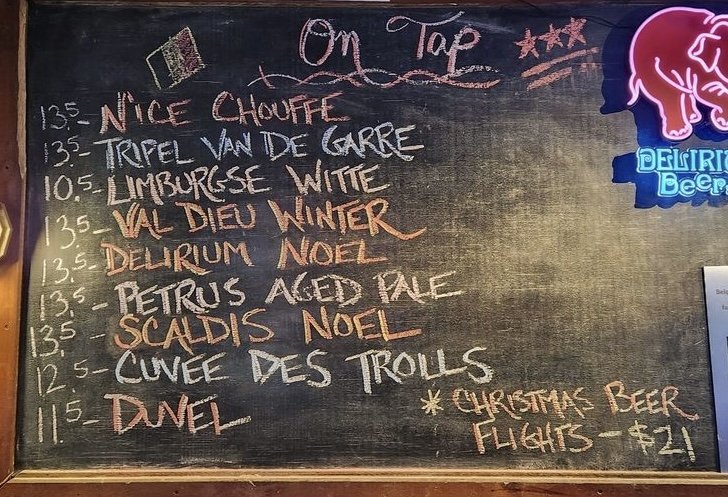 On Tap
13.5 - N'ICE CHOUFFE
13.5 - TRIPEL VAN DE GARRE
10.5 - LIMBURGSE WITTE
13.5 - VAL DIEU WINTER
13.5 - DELIRIUM NOEL
13.5 - PETRUS AGED PALE
13.5 - SCALDIS NOEL
12.5 - CUVEE DES TROLLS
11.5 - DUVEL
* CHRISTMAS BEER
FLIGHTS - $21
DELIRI
Beer